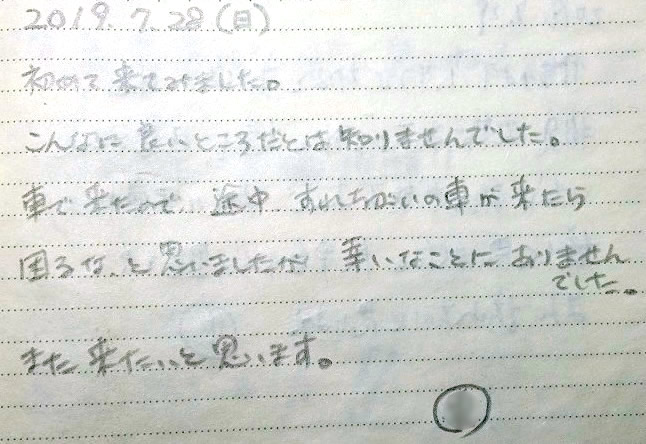 2019.7.28(日)
初めて来てみました。
こんなに良いところだとは知りませんでした。
車で来たので 途中 すれちがいの車が来たら
困るな、と思いましたが 幸いなことにありません
でした。
また来たいと思います。